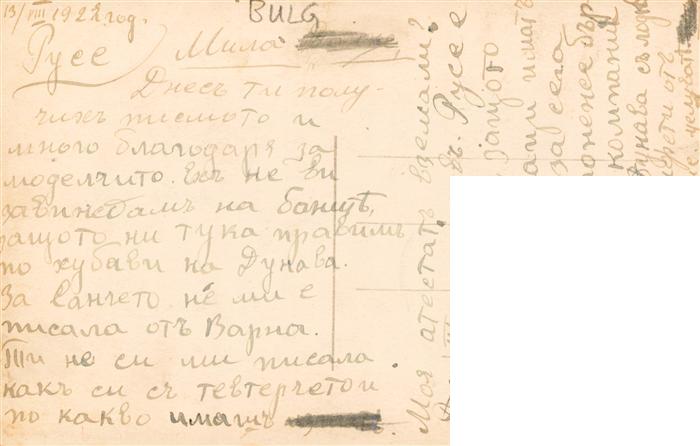 13/VIII 1922 год.
BULG
Русе
Мила
Днесъ ти полу-
чихъ писмото и
много благодаря за
моделчито. Ехъ не ви
завиждамъ на банитѣ,
защото ни тука правимъ
по хубави на Дунава.
За Ванчето не ми е
писала отъ Варна.
Ти не си ми писала
какъ си съ тевтерчето и
по какво имашъ
Моя атестатъ вземали?
въ Русе е
защото
имать
за сега
понеже бър
компания
Дунава съ
отъ